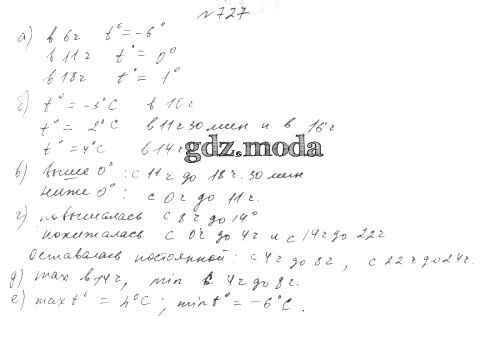 №727
а) в 6ч t° = -6°
в 11ч t° = 0°
в 18ч t° = 1°
б) t° = -3°C в 10ч
t° = 2°C в 11ч 30 мин и в 16ч
t° = 4°C в 14ч
gdz.moda
в) выше 0°: с 11ч до 18ч. 30 мин
ниже 0°: с 0ч до 11ч.
г) повышалась с 8ч до 14°
понижалась с 0ч до 4ч и с 14ч до 22ч
Оставалась постоянной: с 4ч до 8ч, с 22ч до 24ч.
д) max в 14ч, min с 4ч до 8ч.
е) max t° = 4°C; min t° = -6°C.